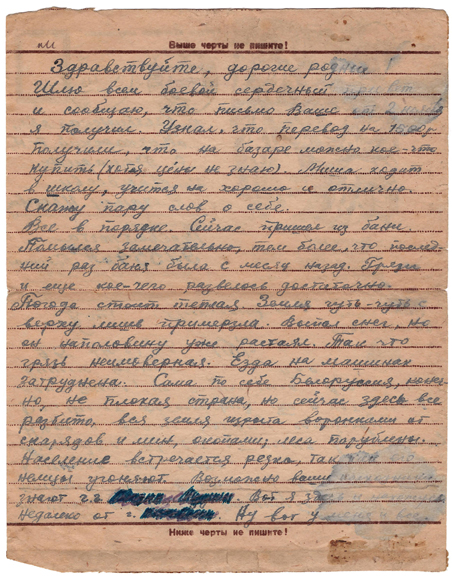 Выше черты не пишите!
Здравствуйте, дорогие родные!
Шлю всем боевой сердечный привет
и сообщаю, что письмо Ваше от 2 ноября
я получил. Узнал, что перевод на 1500 р
получили, что на базаре можно кое-что
купить (хотя цены не знаю). Миша ходит
в школу, учится на хорошо и отлично.
Скажу пару слов о себе.
Все в порядке. Сейчас пришел из бани.
Помылся замечательно, тем более, что послед-
ний раз баня была с месяц назад. Грязи
и еще кое-чего развелось достаточно.
Погода стоит теплая Земля чуть-чуть с
верху лишь примерзла. Выпал снег, но
он наполовину уже растаял. Так что
грязь неимоверная. Езда на машинах
затруднена. Сама по себе Белоруссия, конеч-
но, не плохая страна, но сейчас здесь все
разбито, вся земля изрыта воронками от
снарядов и мин, окопами, леса порублены.
Население встречается редко, так как его
немцы угоняют. Возможно Ваши
знают г.г. Вот я здесь и
Недалеко от г. Ну вот у меня и все.
Ниже черты не пишите!